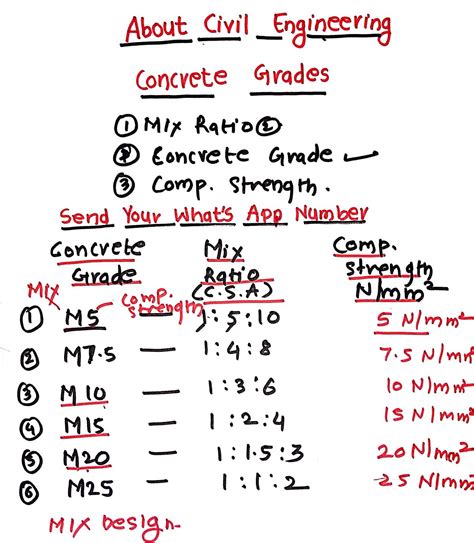 About Civil Engineering
Concrete Grades
① Mix Ratio ②
② Concrete Grade ✓
③ Comp. Strength.
Send Your What's App Number
Concrete Grade Mix Ratio (C.S.A) Comp. Strength N/mm²
Mix Comp. Strength
① M5 — 1:5:10 5 N/mm²
② M7.5 — 1:4:8 7.5 N/mm²
③ M10 — 1:3:6 10 N/mm²
④ M15 — 1:2:4 15 N/mm²
⑤ M20 — 1:1.5:3 20 N/mm²
⑥ M25 — 1:1:2 25 N/mm²
Mix Design.